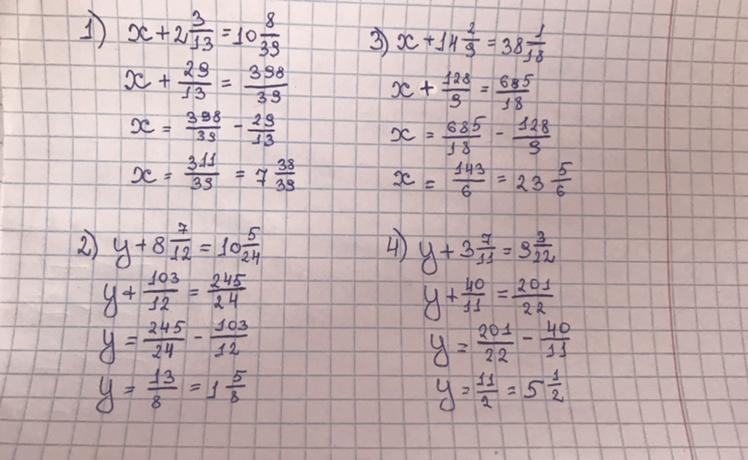 1) x + 2 3/13 = 10 8/39
x + 29/13 = 398/39
x = 398/39 - 29/13
x = 311/39 = 7 38/39
2) y + 8 7/12 = 10 5/24
y + 103/12 = 245/24
y = 245/24 - 103/12
y = 13/8 = 1 5/8
3) x + 14 2/9 = 38 1/18
x + 128/9 = 685/18
x = 685/18 - 128/9
x = 143/6 = 23 5/6
4) y + 3 7/11 = 9 3/22
y + 40/11 = 201/22
y = 201/22 - 40/11
y = 11/2 = 5 1/2